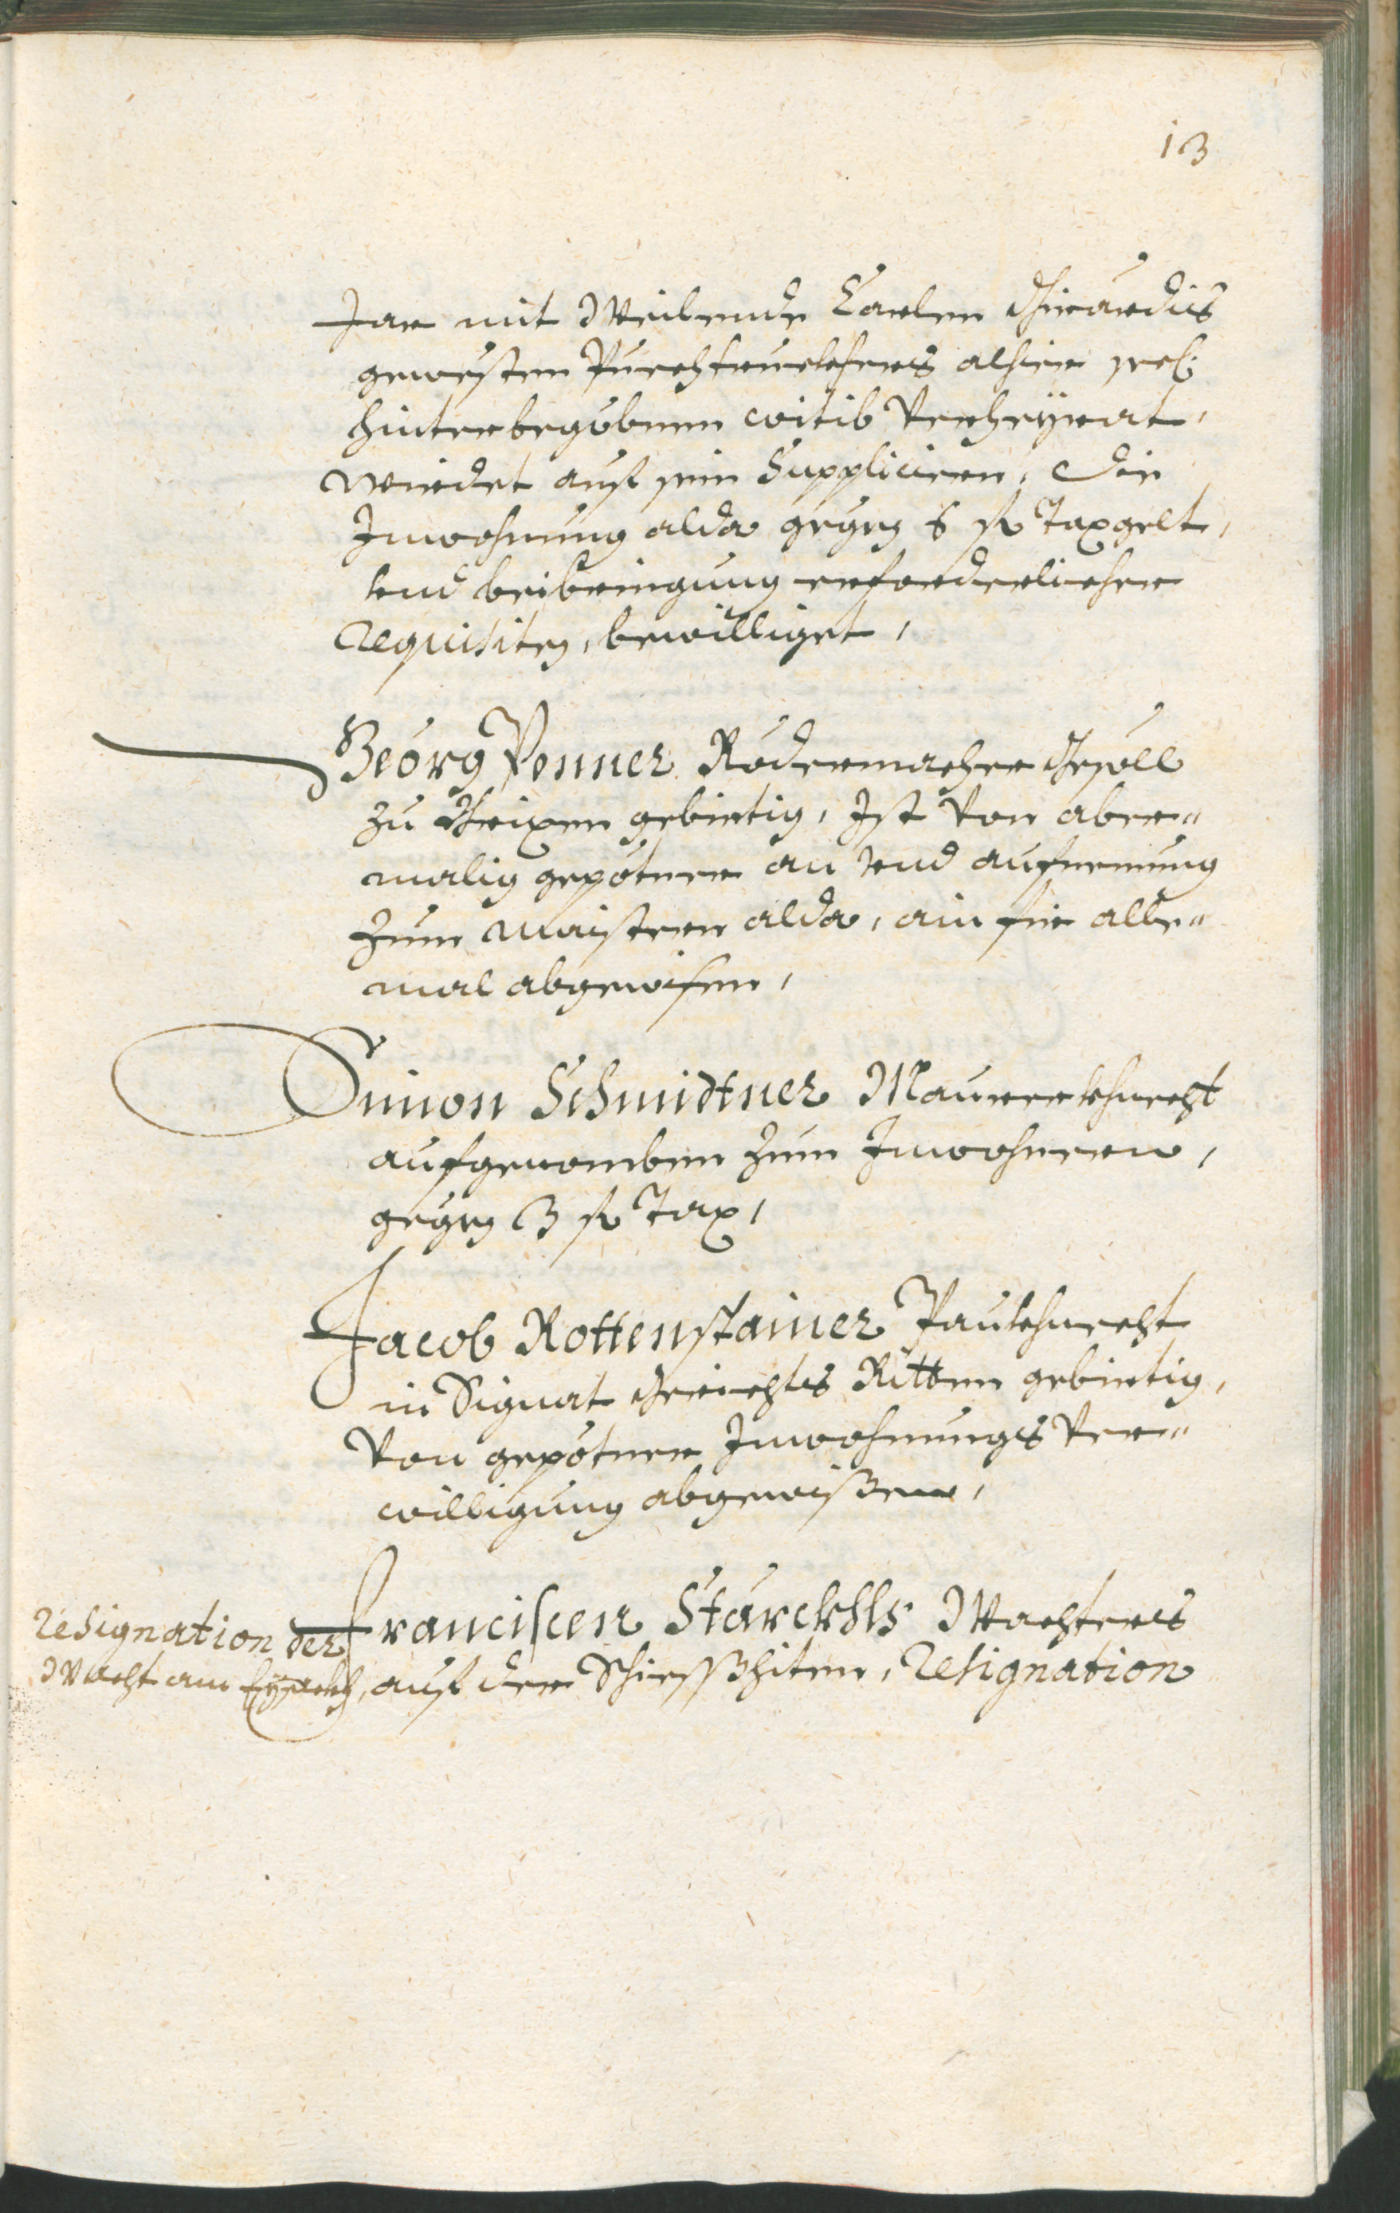 13
Jar mit Weilende Carlen Girardis
gewesten Puechtruckhers alhier sel:
hinterbegebnen witib Verheyrat,
wirdet auf sein Suppliciren, die
Inwohnung alda gegen 6 fl Taxgelt,
vnd beibringung erforderlicher
requisiten, bewilliget,
Georg Penner Rodermacher Gesöll
zu Brixen gebirtig, Ist von aber-
malig gepötner an vnd aufnemung
zum maistern alda, ain für alle-
mal abgewisen,
Simon Schmidtner Maurerkhnecht
aufgenomben zum Inwohnern,
gegen 3 fl Tax,
Jacob Rottenstainer Paukhnecht
in Signat Gerichts Ritten gebirtig,
Von gepötner Inwohnungs Ver-
willigung abgewißen,
Resignation der
Wacht am Eysackh,
Franciscen Starckhls Wachters
auf der Schiesshiten, Resignation